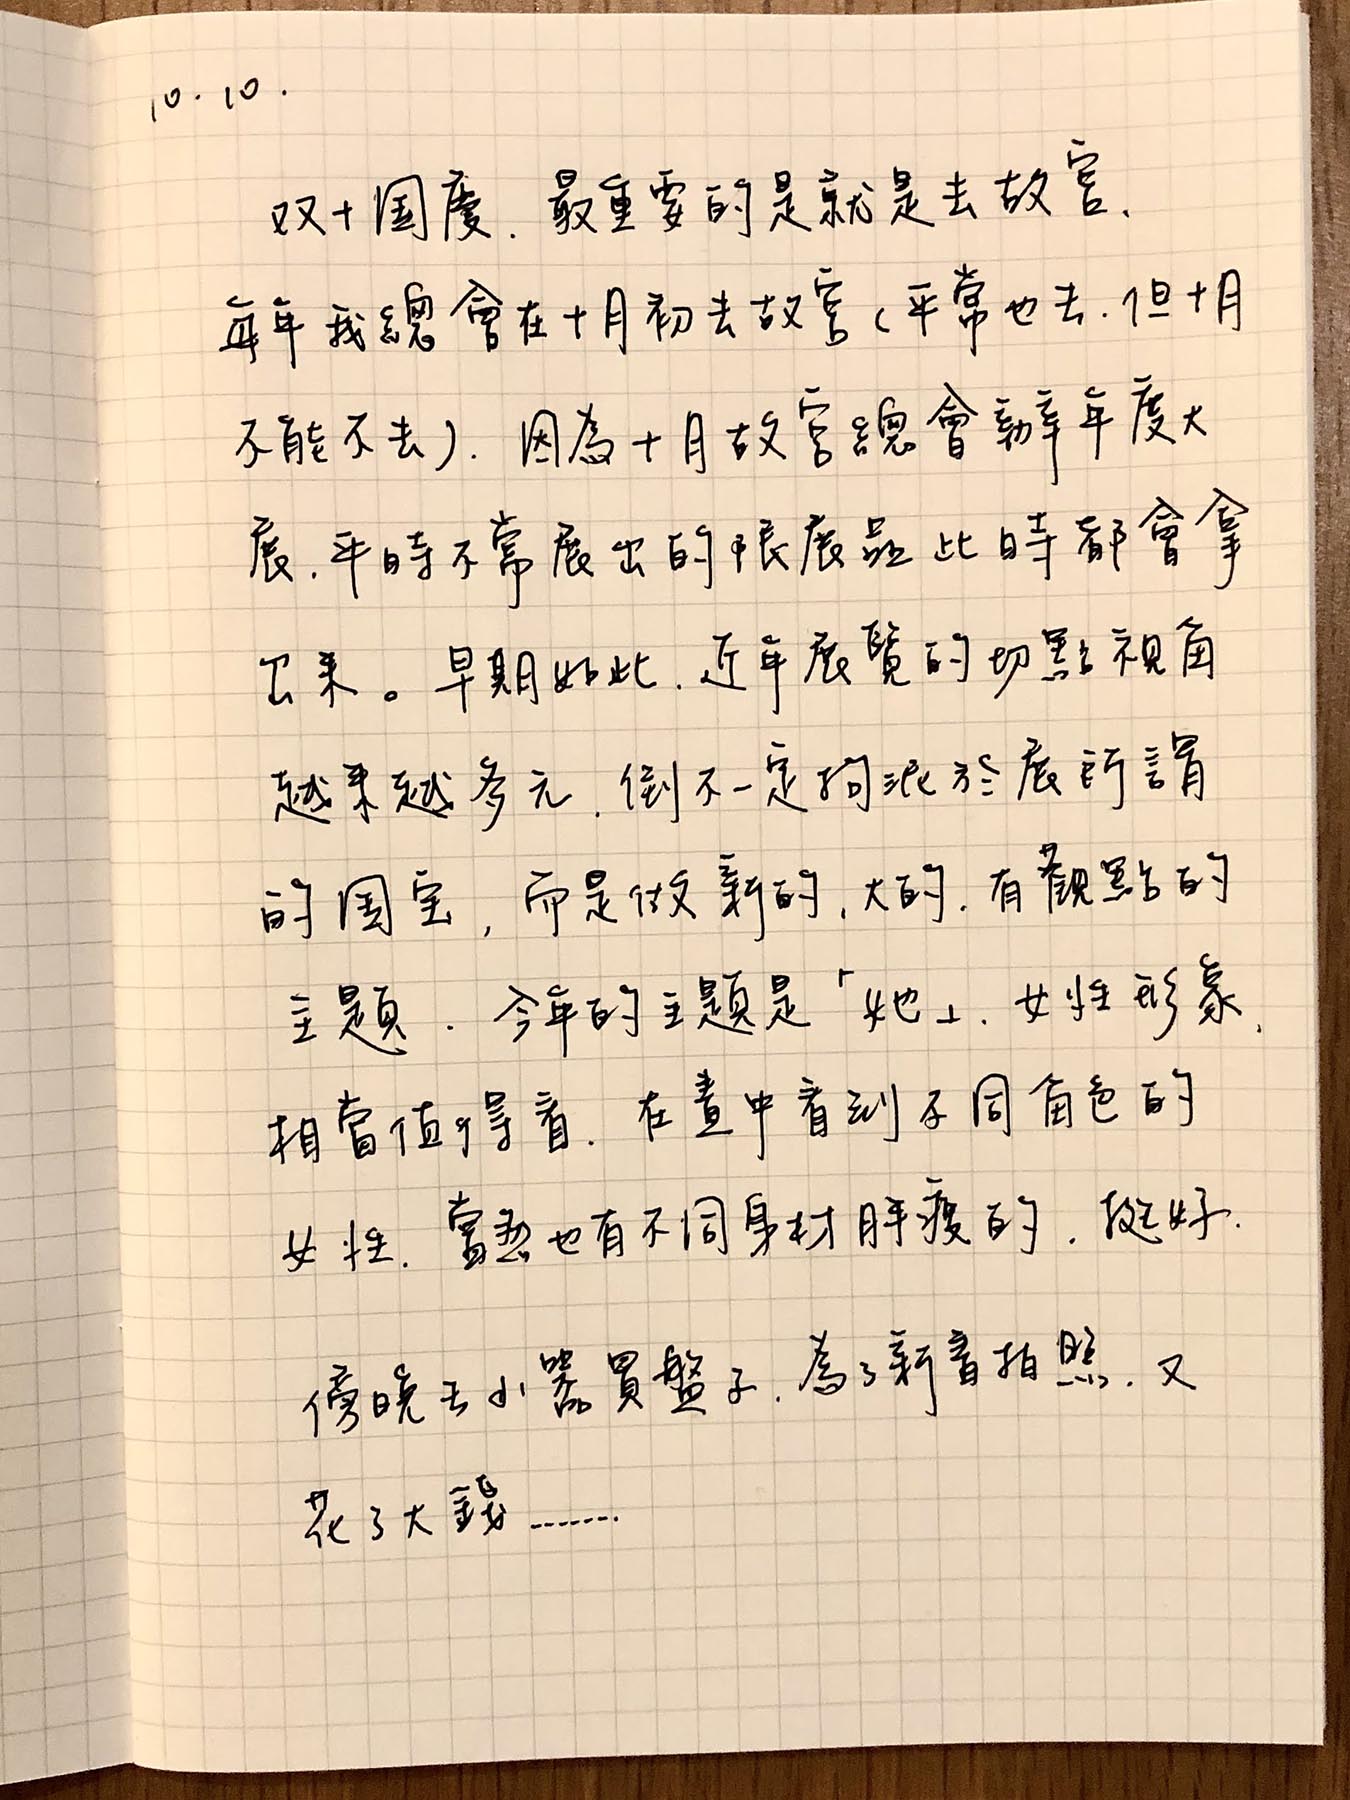 10.10.
双十國慶．最重要的是就是去故宮．
每年我總會在十月初去故宮（平常也去．但十月
不能不去）．因為十月故宮總會辦年度大
展．平時不常展出的限展品此時都會拿
出來。早期如此．近年展覽的切點視角
越來越多元．倒不一定拘泥於展所謂
的国宝，而是做新的．大的．有觀點的
主題．今年的主題是「她」．女性形象．
相當值得看．在畫中看到不同角色的
女性．當然也有不同身材胖瘦的．挺好．
傍晚去小器買盤子．為了新書拍照．又
花了大錢.......